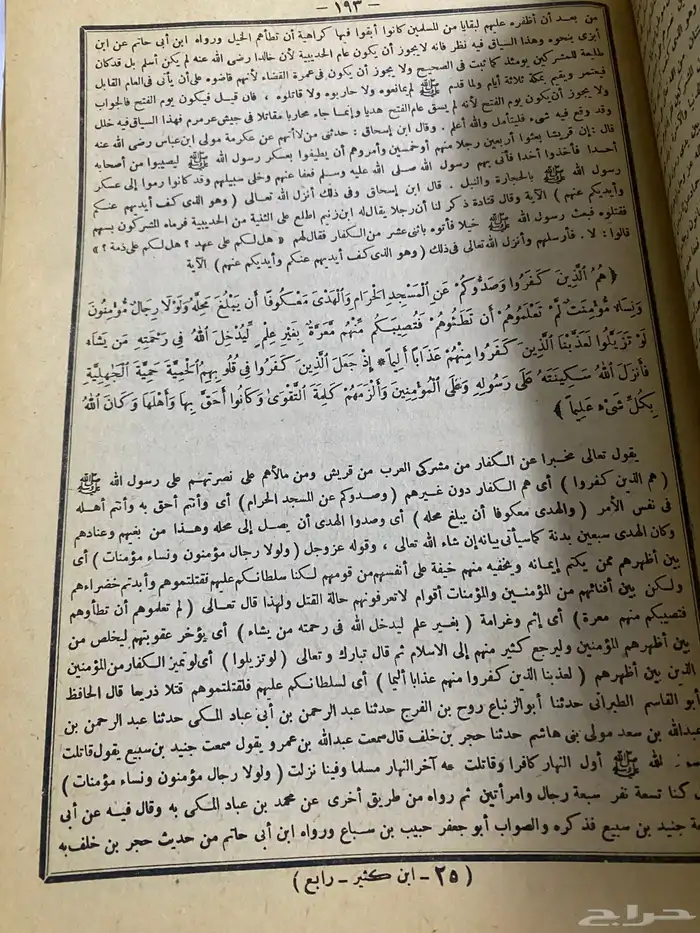 — ١٩٣ —
من بعد أن أظفره عليهم لبقايا من المسلمين كانوا أبقوا فيها كراهية أن تطأهم الخيل ورواه ابن أبى حاتم عن ابن
أبزى بنحوه وهذا السياق فيه نظر فانه لا يجوز أن يكون عام الحديبية لأن خالدا رضى الله عنه لم يكن أسلم بل قد كان
طليعة للمشركين يومئذ كما ثبت فى الصحيح ولا يجوز أن يكون فى عمرة القضاء لأنهم قاضوه على أن يأتى فى العام القابل
فيعتمر ويقيم بمكة ثلاثة أيام ولما قدم ﷺ لم يمانعوه ولا حاربوه ولا قاتلوه ، فان قيل فيكون يوم الفتح فالجواب
ولا يجوز أن يكون يوم الفتح لأنه لم يسق عام الفتح هديا وإنما جاء محاربا مقاتلا فى جيش عرمرم فهذا السياق فيه خلل
وقد وقع فيه شىء فليتأمل والله أعلم . وقال ابن إسحاق : حدثنى من لا أتهم عن عكرمة مولى ابن عباس رضى الله عنه
قال : إن قريشا بعثوا أربعين رجلا منهم أو خمسين وأمروهم أن يطيفوا بعسكر رسول الله ﷺ ليصيبوا من أصحابه
أحدا فأخذوا أخذا فأتى بهم رسول الله صلى الله عليه وسلم فعفا عنهم وخلى سبيلهم وقد كانوا رموا إلى عسكر
رسول الله ﷺ بالحجارة والنبل . قال ابن إسحاق وفى ذلك أنزل الله تعالى ( وهو الذى كف أيديهم عنكم
وأيديكم عنهم ) الآية وقال قتادة ذكر لنا أن رجلا يقال له ابن زنيم اطلع على الثنية من الحديبية فرماه المشركون بسهم
فقتلوه فبعث رسول الله ﷺ خيلا فأتوه باثنى عشر من الكفار فقال لهم « هل لكم على عهد ؟ هل لكم على ذمة ؟ »
قالوا : لا . فأرسلهم وأنزل الله تعالى فى ذلك ( وهو الذى كف أيديهم عنكم وأيديكم عنهم ) الآية
﴿ هُمُ ٱلَّذِينَ كَفَرُوا وَصَدُّوكُمْ عَنِ ٱلْمَسْجِدِ ٱلْحَرَامِ وَٱلْهَدْىَ مَعْكُوفًا أَن يَبْلُغَ مَحِلَّهُ وَلَوْلَا رِجَالٌ مُّؤْمِنُونَ
وَنِسَاءٌ مُّؤْمِنَٰتٌ لَّمْ تَعْلَمُوهُمْ أَن تَطَئُوهُمْ فَتُصِيبَكُم مِّنْهُم مَّعَرَّةٌ بِغَيْرِ عِلْمٍ لِّيُدْخِلَ ٱللَّهُ فِى رَحْمَتِهِ مَن يَشَاءُ
لَوْ تَزَيَّلُوا لَعَذَّبْنَا ٱلَّذِينَ كَفَرُوا مِنْهُمْ عَذَابًا أَلِيمًا * إِذْ جَعَلَ ٱلَّذِينَ كَفَرُوا فِى قُلُوبِهِمُ ٱلْحَمِيَّةَ حَمِيَّةَ ٱلْجَٰهِلِيَّةِ
فَأَنزَلَ ٱللَّهُ سَكِينَتَهُ عَلَىٰ رَسُولِهِ وَعَلَى ٱلْمُؤْمِنِينَ وَأَلْزَمَهُمْ كَلِمَةَ ٱلتَّقْوَىٰ وَكَانُوا أَحَقَّ بِهَا وَأَهْلَهَا وَكَانَ ٱللَّهُ
بِكُلِّ شَىْءٍ عَلِيمًا ﴾
يقول تعالى مخبرا عن الكفار من مشركى العرب من قريش ومن مالأهم على نصرتهم على رسول الله ﷺ
( هم الذين كفروا ) أى هم الكفار دون غيرهم ( وصدوكم عن المسجد الحرام ) أى وأنتم أحق به وأنتم أهله
فى نفس الأمر ( والهدى معكوفا أن يبلغ محله ) أى وصدوا الهدى أن يصل إلى محله وهذا من بغيهم وعنادهم
وكان الهدى سبعين بدنة كما سيأتى بيانه إن شاء الله تعالى ، وقوله عز وجل ( ولولا رجال مؤمنون ونساء مؤمنات ) أى
بين أظهرهم ممن يكتم إيمانه ويخفيه منهم خيفة على أنفسهم من قومهم لكنا سلطناكم عليهم فقتلتموهم وأبدتم خضراءهم
ولكن بين أفنائهم من المؤمنين والمؤمنات أقوام لا تعرفونهم حالة القتل ولهذا قال تعالى ( لم تعلموهم أن تطأوهم
فتصيبكم منهم معرة ) أى إثم وغرامة ( بغير علم ليدخل الله فى رحمته من يشاء ) أى يؤخر عقوبتهم ليخلص من
بين أظهرهم المؤمنين وليرجع كثير منهم إلى الاسلام ثم قال تبارك وتعالى ( لو تزيلوا ) أى لو تميز الكفار من المؤمنين
الذين بين أظهرهم ( لعذبنا الذين كفروا منهم عذابا أليما ) أى لسلطناكم عليهم فلقتلتموهم قتلا ذريعا قال الحافظ
أبو القاسم الطبرانى حدثنا أبو الزنباع روح بن الفرج حدثنا عبد الرحمن بن أبى عباد المكى حدثنا عبد الرحمن بن
عبد الله بن سعد مولى بنى هاشم حدثنا حجر بن خلف قال سمعت عبد الله بن عمرو يقول سمعت جنيد بن سبيع يقول قاتلت
الله ﷺ أول النهار كافرا وقاتلت معه آخر النهار مسلما وفينا نزلت ( ولولا رجال مؤمنون ونساء مؤمنات )
كنا تسعة نفر سبعة رجال وامرأتين ثم رواه من طريق أخرى عن محمد بن عباد المكى به وقال فيه عن أبى
جنيد بن سبيع فذكره والصواب أبو جعفر حبيب بن سباع ورواه ابن أبى حاتم من حديث حجر بن خلف به
( ٢٥ - ابن كثير - رابع )
حراج